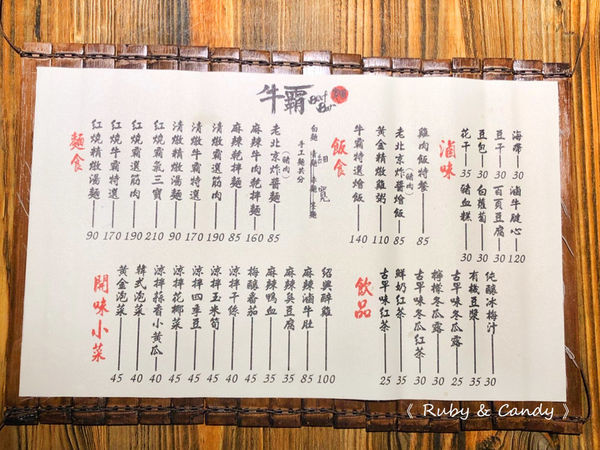 牛霸
Beef Bar
麵食
紅燒精燉湯麵 90
紅燒牛霸特選 170
紅燒霸選筋肉 190
紅燒霸氣三寶 210
清燉精燉湯麵 90
清燉牛霸特選 170
清燉霸選筋肉 190
麻辣乾拌麵 85
麻辣牛肉乾拌麵 160
老北京炸醬麵(豬肉) 85
手工麵共分
飯食
牛霸特選燴飯 140
黃金精燉雞粥 110
老北京炸醬燴飯(豬肉) 85
雞肉飯特餐 85
滷味
花干 35
豆包 30
豆干 30
海帶 30
豬血糕 30
白蘿蔔 30
百頁豆腐 30
滷牛腱心 120
開味小菜
黃金泡菜 45
韓式泡菜 40
涼拌蒜香小黃瓜 40
涼拌花椰菜 45
涼拌四季豆 45
涼拌玉米筍 45
涼拌干絲 40
梅釀番茄 45
麻辣鴨血 35
麻辣臭豆腐 35
麻辣滷牛肚 85
紹興醉雞 100
飲品
古早味紅茶 25
鮮奶紅茶 35
古早味冬瓜紅茶 30
檸檬冬瓜露 30
古早味冬瓜露 25
有機豆漿 35
純釀冰梅汁 30
《 Ruby & Candy 》